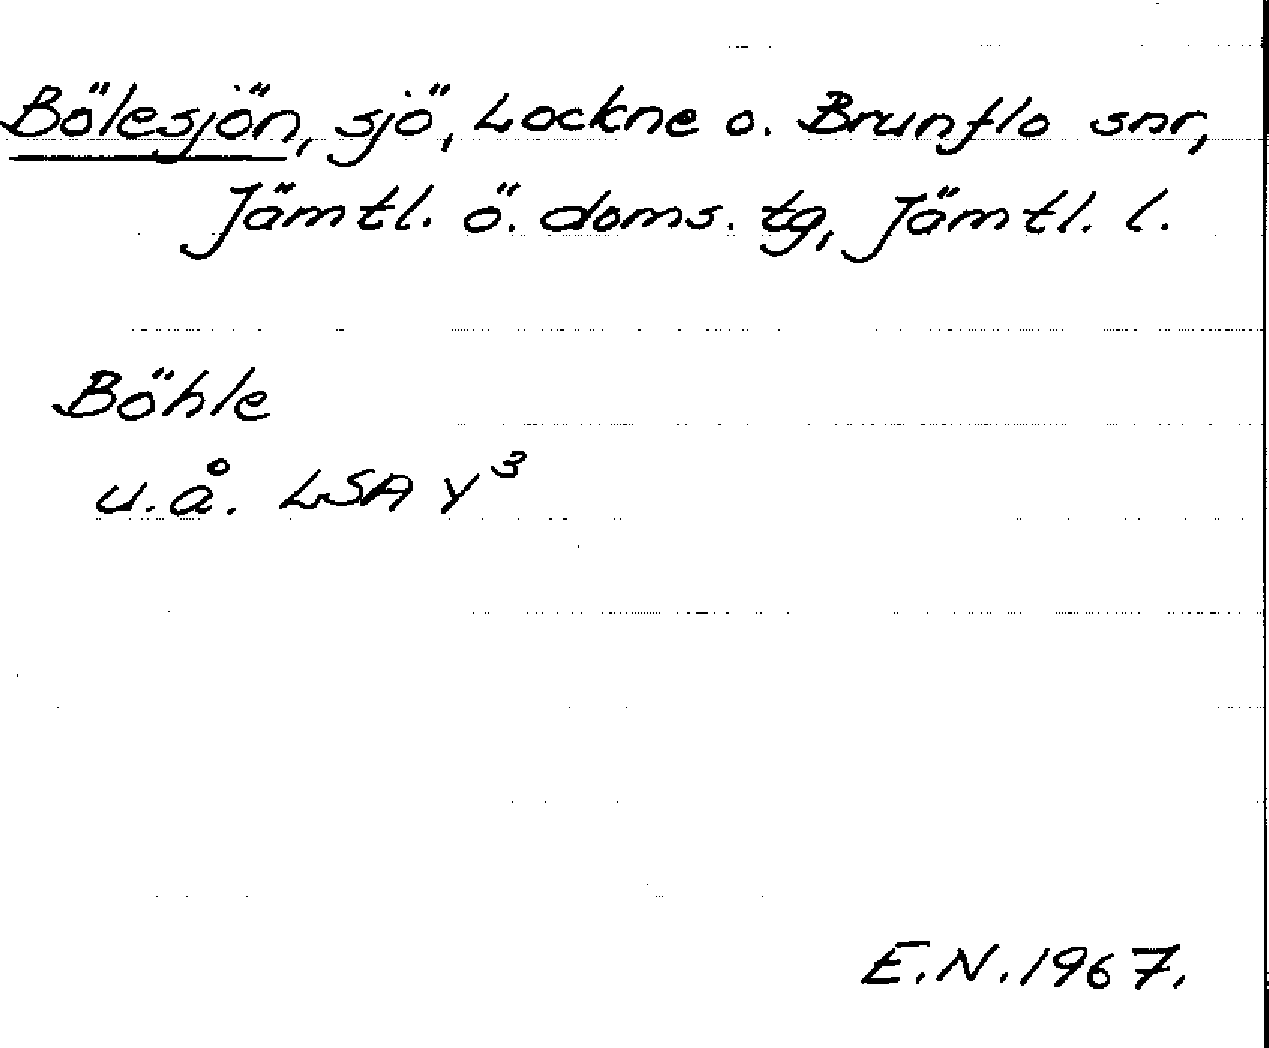 Bölesjön, sjö, Lockne o. Brunflo snr,
Jämtl. ö. doms. tg, Jämtl. l.
Böhle
u.å. LSA Y³
E.N. 1967.